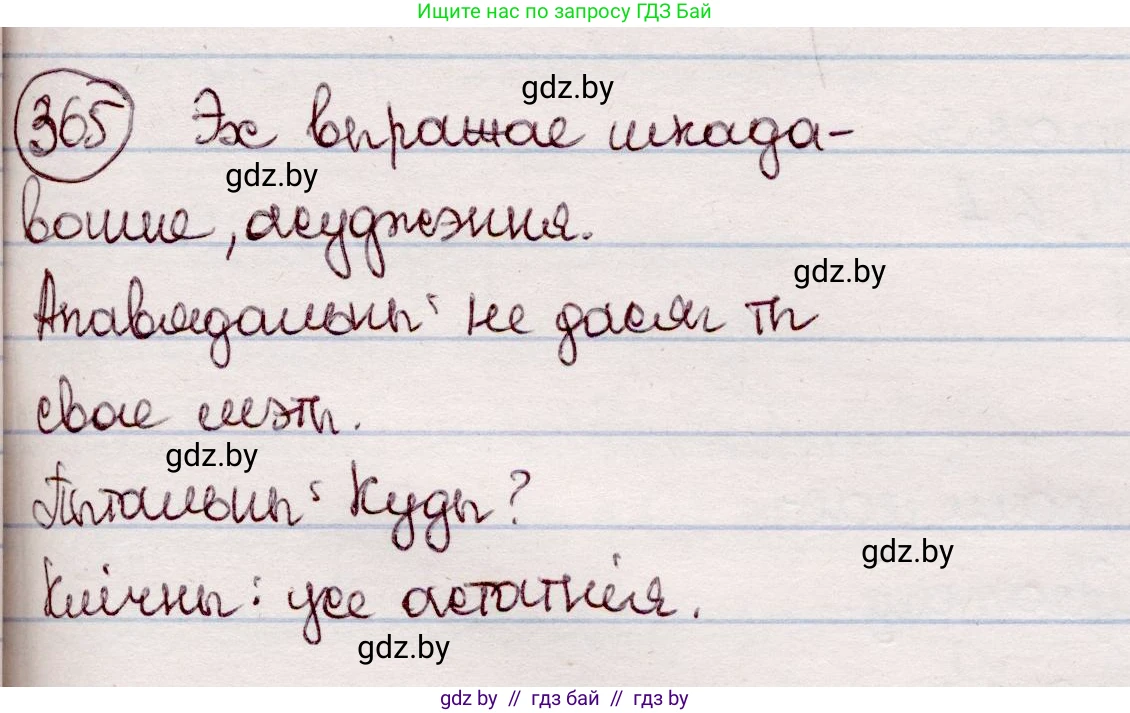 Ищите нас по запросу ГДЗ Бай
gdz.by
365 Эх выражае шкада-
gdz.by
ванне, асуджэння.
gdz.by
Апавядальны: не дасяг ты
свае мэты.
gdz.by
Пытальны: Куды?
gdz.by
Клічны: усе астатнія.
gdz.by
gdz by // гдз бай // гдз by